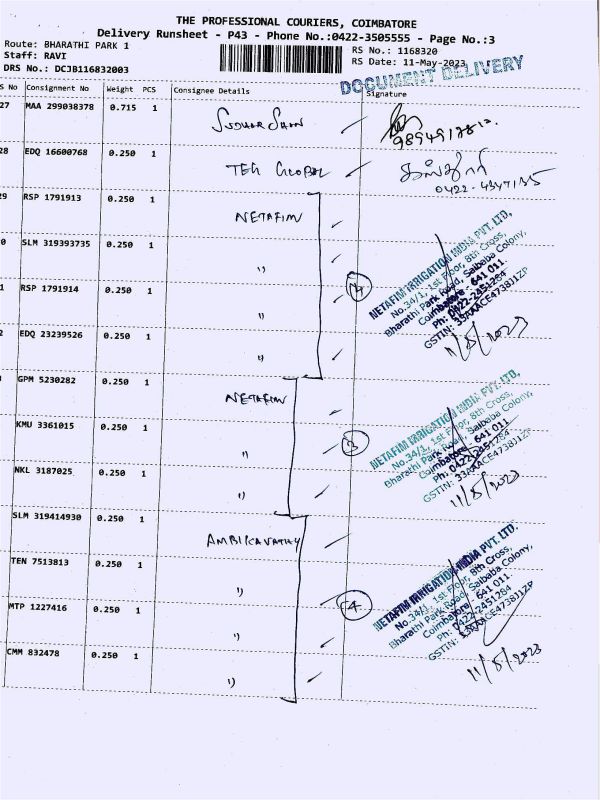 THE PROFESSIONAL COURIERS, COIMBATORE
Delivery Runsheet - P43 - Phone No.:0422-3505555 - Page No.:3
Route: BHARATHI PARK 1
Staff: RAVI
DRS No.: DCJB116832003
RS No.: 1168320
RS Date: 11-May-2023
DOCUMENT DELIVERY
S No Consignment No Weight PCS Consignee Details Signature
27 MAA 299038378 0.715 1
28 EDQ 16600768 0.250 1 TEG GLOBAL
0422-4347135
29 RSP 1791913 0.250 1 NETAFIM
0 SLM 319393735 0.250 1 "
1 RSP 1791914 0.250 1 "
2 EDQ 23239526 0.250 1 "
4
NETAFIM IRRIGATION INDIA PVT. LTD,
No.34/1, 1st Floor, 8th Cross,
Bharathi Park Road, Saibaba Colony,
Coimbatore - 641 011.
Ph: 0422-2451284
GSTIN: 33AAACE4738J1ZP
11/5/2023
GPM 5230282 0.250 1 NETAFIM
KMU 3361015 0.250 1 "
NKL 3187025 0.250 1 "
3
NETAFIM IRRIGATION INDIA PVT. LTD,
No.34/1, 1st Floor, 8th Cross,
Bharathi Park Road, Saibaba Colony,
Coimbatore - 641 011.
Ph: 0422-2451284
GSTIN: 33AAACE4738J1ZP
11/5/2023
SLM 319414930 0.250 1 AMBIKAVATHY
TEN 7513813 0.250 1 "
MTP 1227416 0.250 1 "
CMM 832478 0.250 1 "
4
NETAFIM IRRIGATION INDIA PVT. LTD.
No.34/1, 1st Floor, 8th Cross,
Bharathi Park Road, Saibaba Colony,
Coimbatore - 641 011.
Ph: 0422-2451284
GSTIN: 33AAACE4738J1ZP
11/5/2023